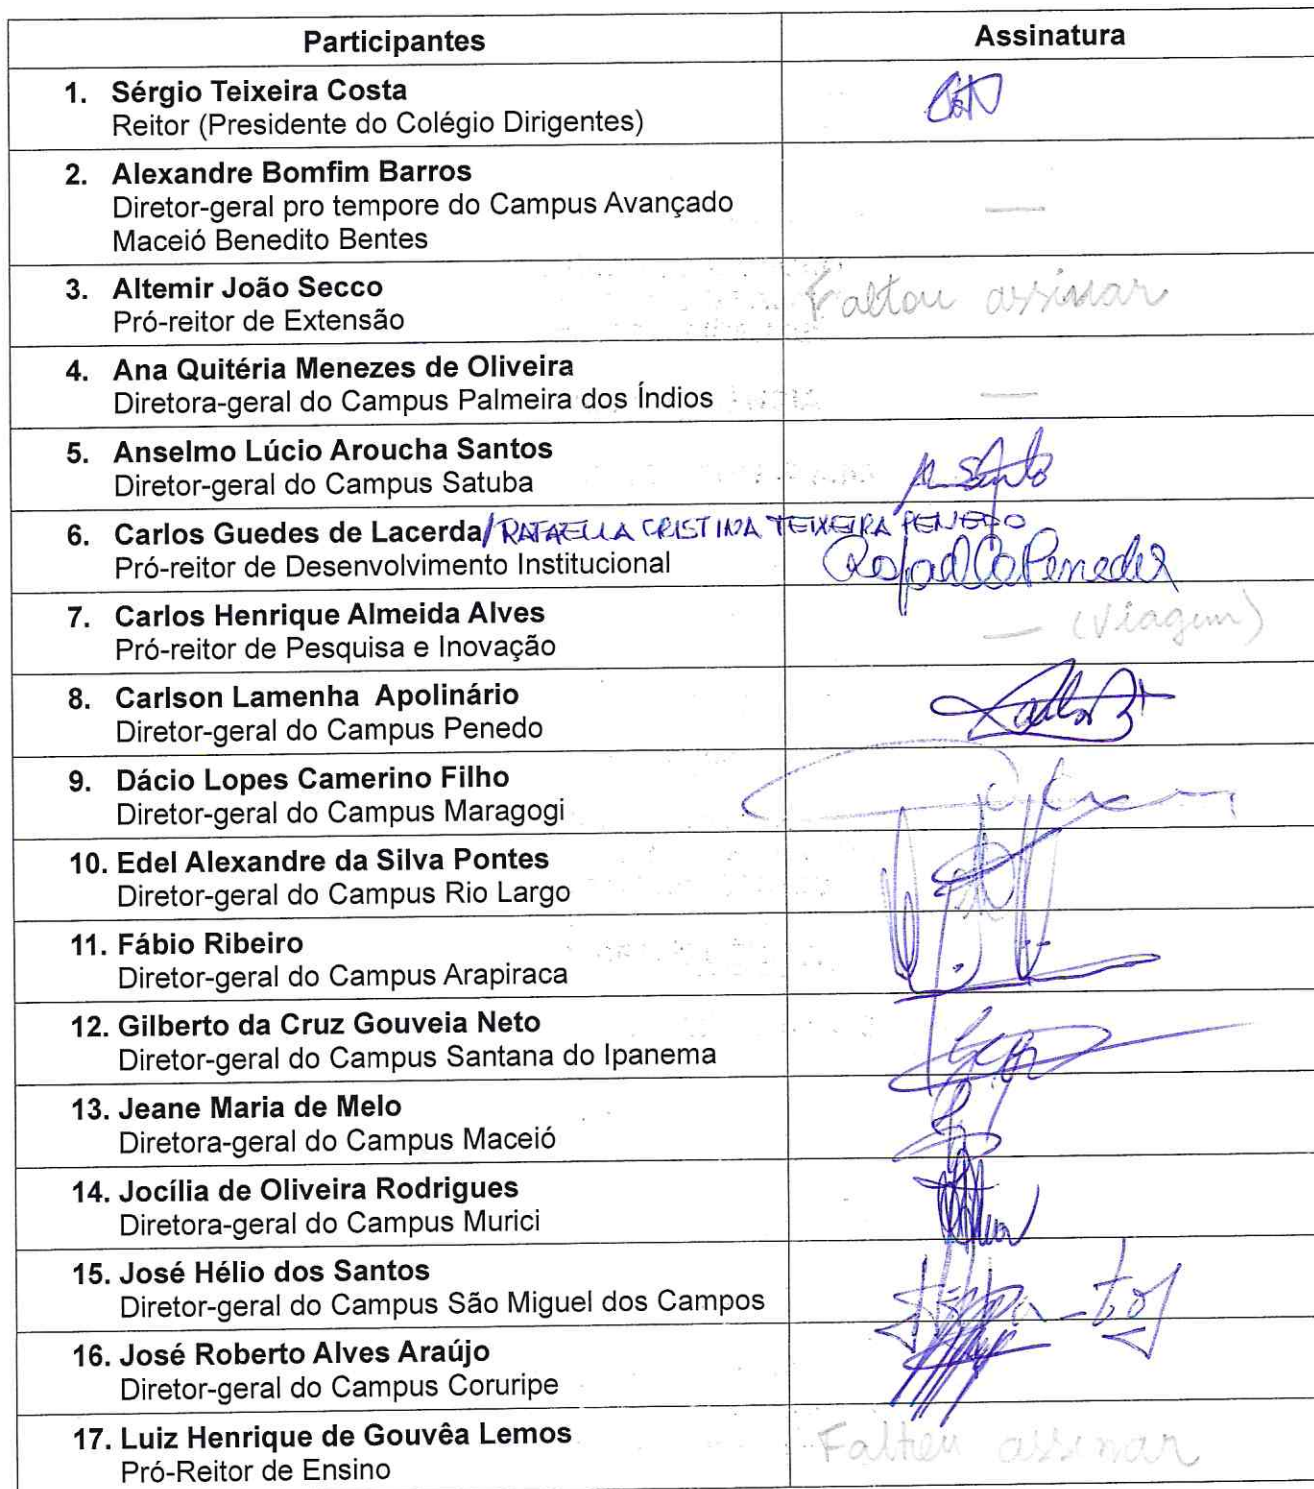 Participantes Assinatura
1. Sérgio Teixeira Costa
Reitor (Presidente do Colégio Dirigentes)
2. Alexandre Bomfim Barros
Diretor-geral pro tempore do Campus Avançado
Maceió Benedito Bentes —
3. Altemir João Secco
Pró-reitor de Extensão
Faltou assinar
4. Ana Quitéria Menezes de Oliveira
Diretora-geral do Campus Palmeira dos Índios —
5. Anselmo Lúcio Aroucha Santos
Diretor-geral do Campus Satuba
6. Carlos Guedes de Lacerda/RAFAELLA CRISTINA TEIXEIRA PENEDO
Pró-reitor de Desenvolvimento Institucional
7. Carlos Henrique Almeida Alves
Pró-reitor de Pesquisa e Inovação
— (Viagem)
8. Carlson Lamenha Apolinário
Diretor-geral do Campus Penedo
9. Dácio Lopes Camerino Filho
Diretor-geral do Campus Maragogi
10. Edel Alexandre da Silva Pontes
Diretor-geral do Campus Rio Largo
11. Fábio Ribeiro
Diretor-geral do Campus Arapiraca
12. Gilberto da Cruz Gouveia Neto
Diretor-geral do Campus Santana do Ipanema
13. Jeane Maria de Melo
Diretora-geral do Campus Maceió
14. Jocília de Oliveira Rodrigues
Diretora-geral do Campus Murici
15. José Hélio dos Santos
Diretor-geral do Campus São Miguel dos Campos
16. José Roberto Alves Araújo
Diretor-geral do Campus Coruripe
17. Luiz Henrique de Gouvêa Lemos
Pró-Reitor de Ensino
Faltou assinar